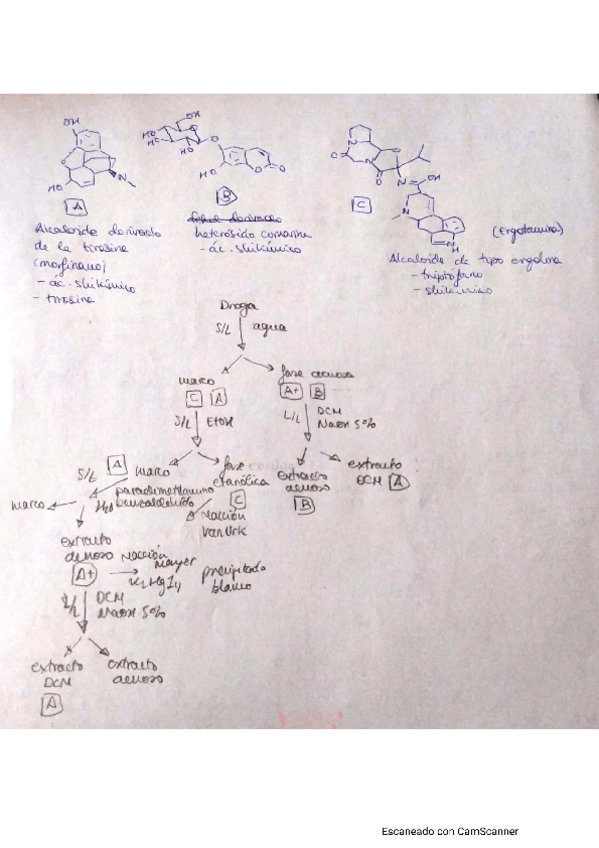 OH
HO
N
A
Alcaloide derivado
de la tirosina
(morfinano)
- ác. shikímico
- tirosina
OH
HO
HO
HO
O
O
HO
O
O
B
heterósido cumarina
- ác. shikímico
O
N
N
O
O
N
OH
N
N
H
C
(Ergotamina)
Alcaloide de tipo ergolina
- triptófano
- shikímico
Droga
S/L agua
marco
C A
fase acuosa
A+ B
S/L EtOH
L/L DCM
NaOH 5%
A marco
fase
etanólica
C
extracto
acuoso
B
extracto
DCM A
S/L
marco
H2O
paradimetilamino
benzaldehído
reacción
Van Urk
extracto
acuoso
A+
reacción
Mayer
K2HgI4
precipitado
blanco
L/L DCM
NaOH 5%
extracto
DCM
A
extracto
acuoso
Escaneado con CamScanner